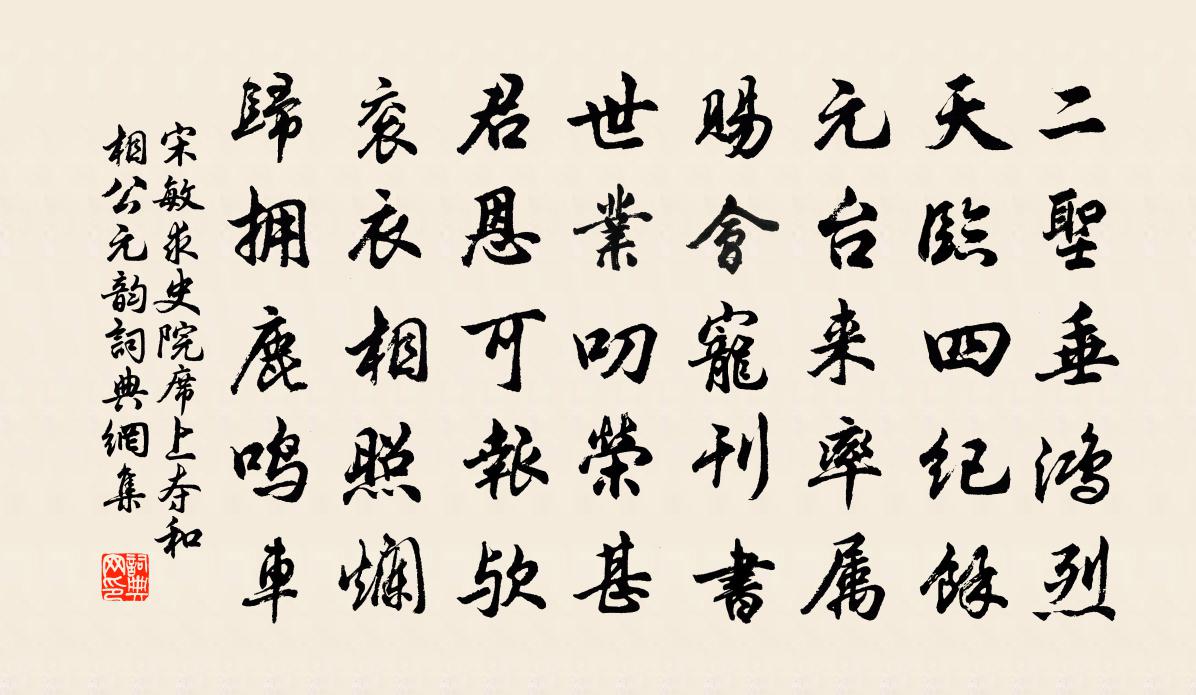 二聖垂鴻烈
天臨四纪餘
元台来率属
賜會寵刊書
世業叨榮甚
君恩可報欤
衮衣相照爛
歸拥鹿鸣車
宋敏求史院席上夲和
相公元韵詞典網集
詞典
网印